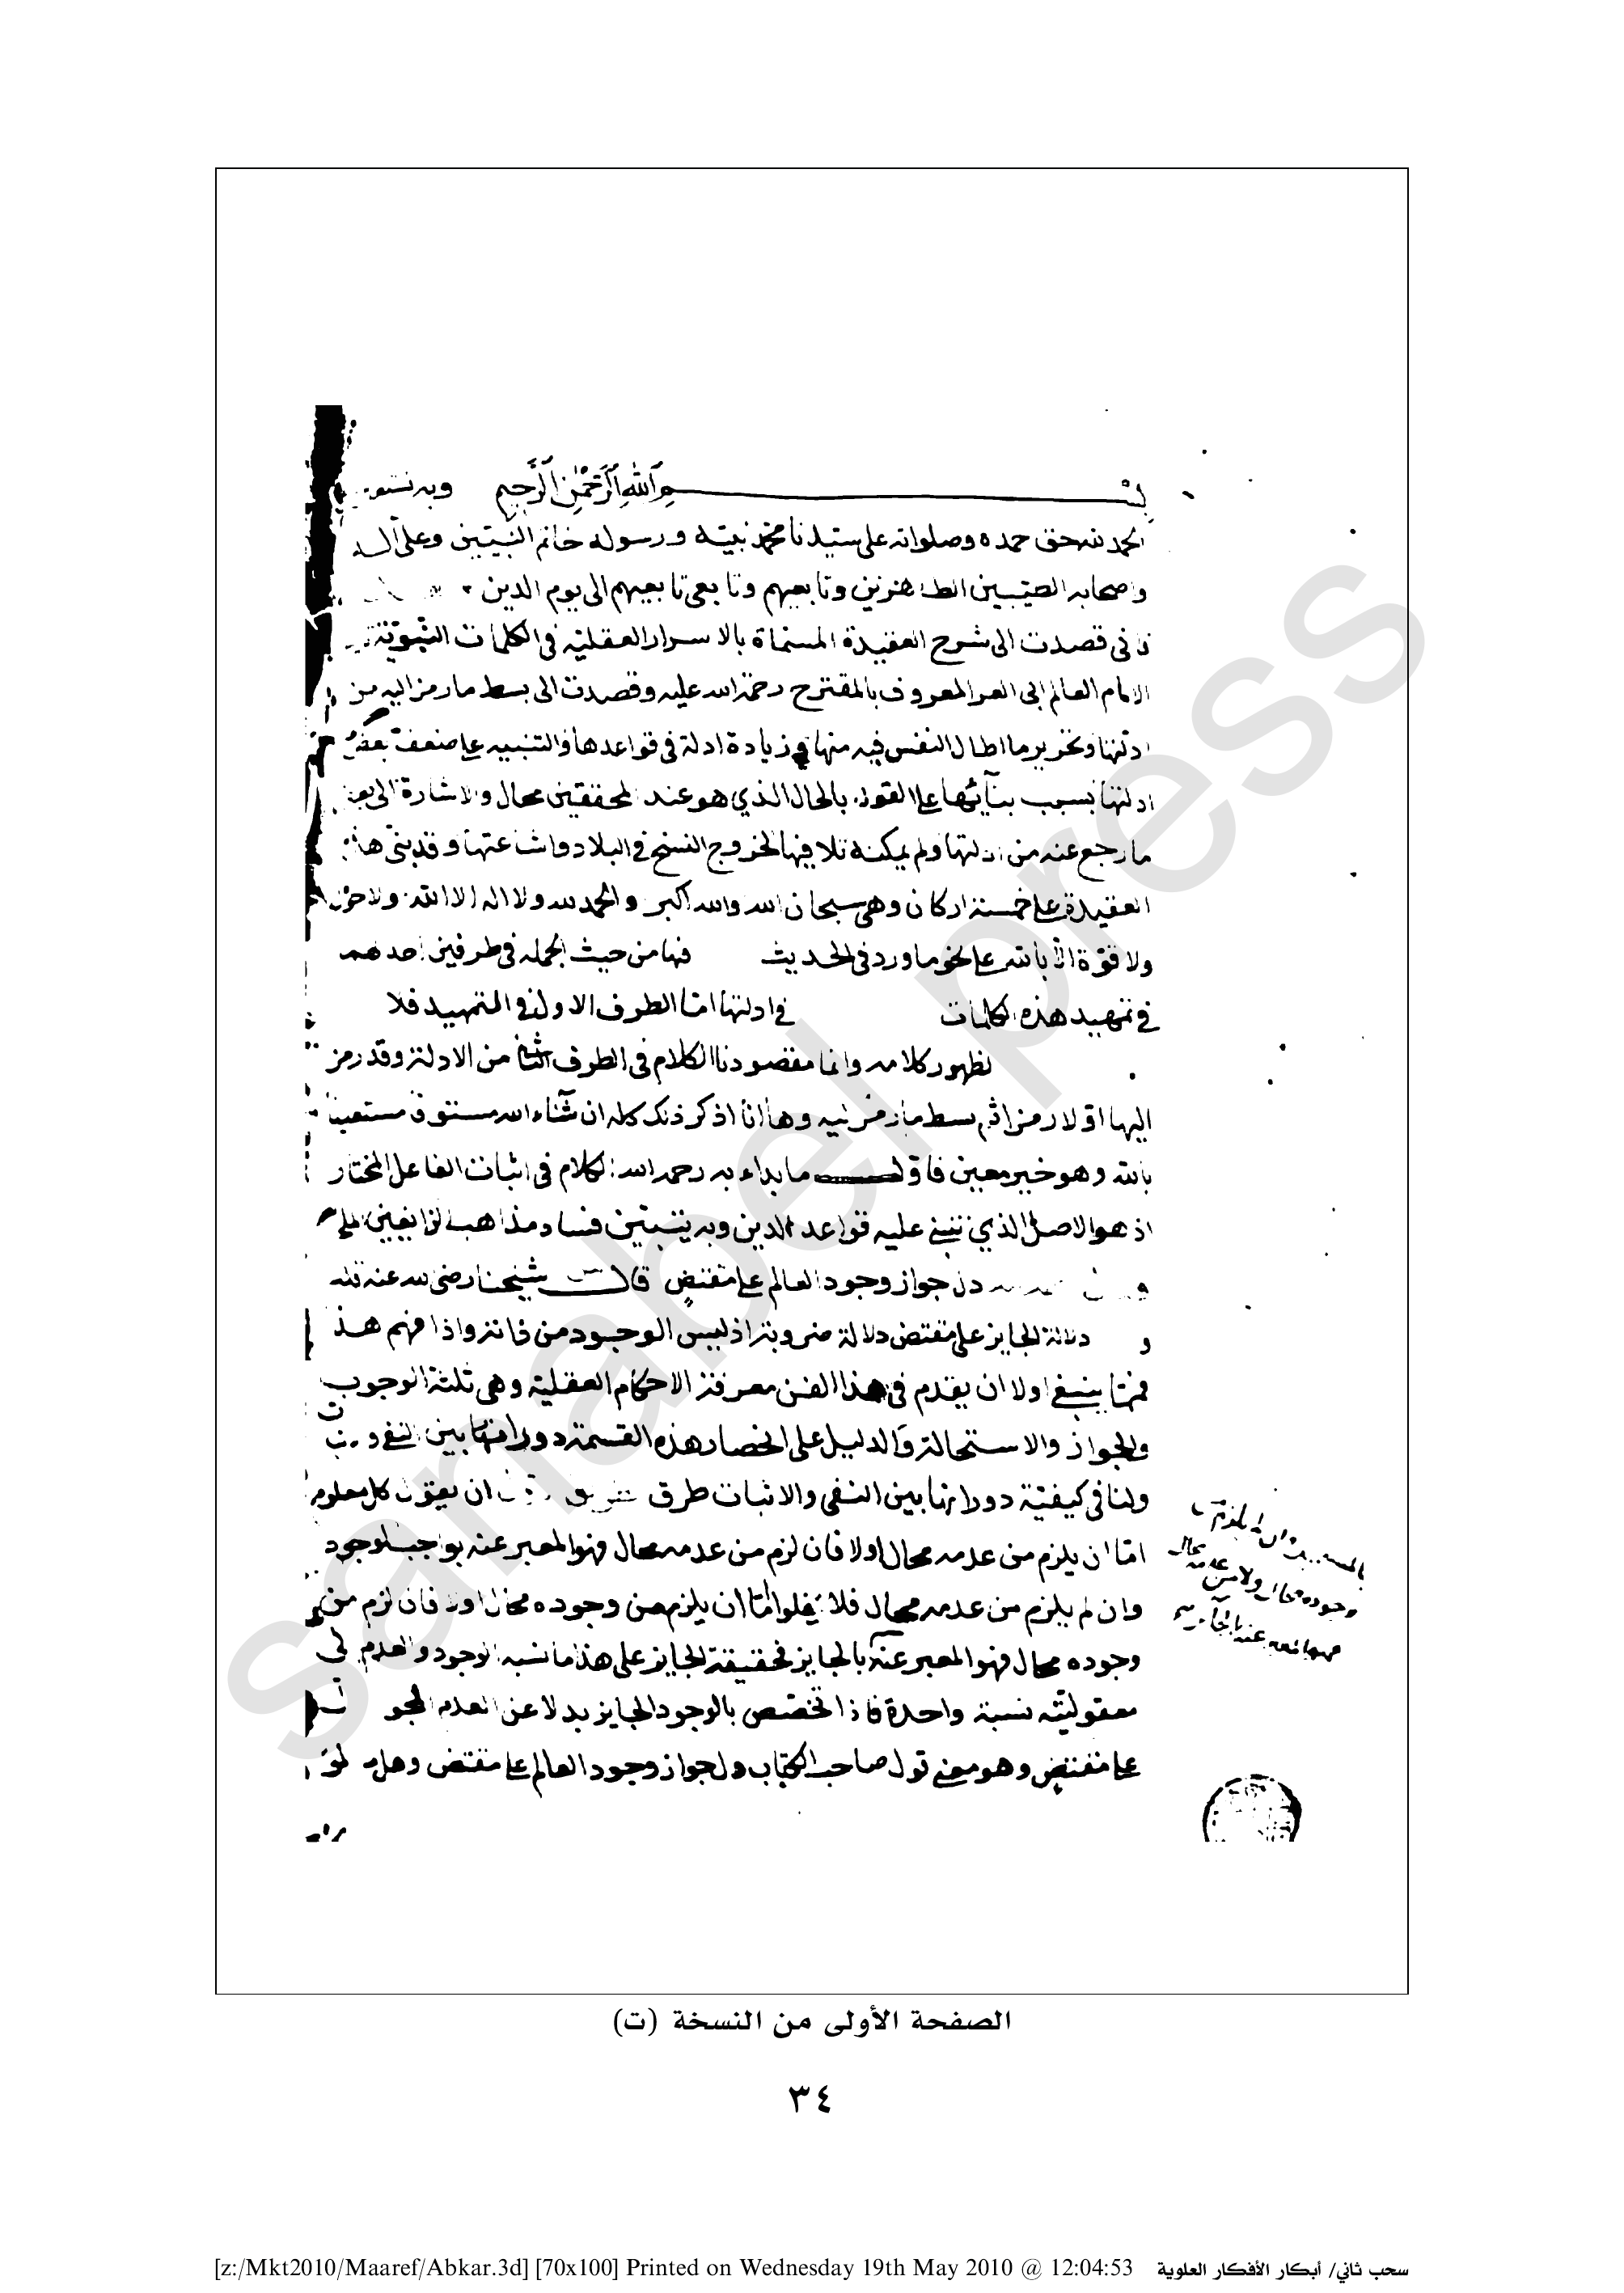 بسم الله الرحمن الرحيم وبه نستعين
الحمد لله حق حمده وصلواته على سيدنا محمد نبيه ورسوله خاتم النبيين وعلى اله
واصحابه الطيبين الطاهرين وتابعيهم وتابعي تابعيهم الى يوم الدين
فاني قصدت الى شرح العقيدة المسماة بالاسرار العقلية في الكلمات النبوية
الامام العالم ابي العز المعروف بالمقترح رحمة الله عليه وقصدت الى بسط ما رمز اليه من
ادلتها وتحرير ما اطال النفس فيه منها في زيادة ادلة في قواعدها والتنبيه على ضعف بعض
ادلتها بسبب بنائها على القول بالحال الذي هو عند المحققين محال والاشارة الى بعض
ما رجع عنه من ادلتها ولم يمكنه تلافيها لخروج النسخ في البلاد واشاعتها وقد بنى هذه
العقيدة على خمسة اركان وهي سبحان الله والله اكبر والحمد لله ولا اله الا الله ولا حول
ولا قوة الا بالله على نحو ما ورد في الحديث فيها من حيث الجملة في طرفين احدهما
في تمهيد هذه الكلمات في ادلتها اما الطرف الاول في التمهيد فلا
لظهور كلامه وانما مقصودنا الكلام في الطرف الثاني من الادلة وقد رمز
اليها اولا رمزا ثم بسط ما رمز اليه وها انا اذكر ذلك كله ان شاء الله مستوفى مستعينا
بالله وهو خير معين فاول ما بداء به رحمه الله الكلام في اثبات الفاعل المختار
اذ هو الاصل الذي تنبني عليه قواعد الدين وبه يتبين فساد مذاهب الزايغين
دل جواز وجود العالم على مقتض قال شيخنا رضي الله عنه
و دلالة الجايز على مقتض دلالة ضرورية اذ ليس الوجود من ذاته واذا فهم هذا
فمما ينبغي اولا ان يقدم في هذا الفن معرفة الاحكام العقلية وهي ثلثة الوجوب
والجواز والاستحالة والدليل على انحصار هذه القسمة دورانها بين النفي
ولنا في كيفية دورانها بين النفي والاثبات طرق ان يقول كل معلوم
اما ان يلزم من عدمه محال اولا فان لزم من عدمه محال فهو المعبر عنه بواجب الوجود
وان لم يلزم من عدمه محال فلا يخلوا اما ان يلزم من وجوده محال اولا فان لزم من
وجوده محال فهو المعبر عنه بالجايز فحقيقة الجايز على هذا ما نسبة الوجود والعدم الى
معقوليته نسبة واحدة فاذا تخصص بالوجود الجايز بدلا عن العدم
على مقتض وهو معنى قول صاحب الكتاب ولجواز وجود العالم على مقتض
وان لم يلزم
وجوده محال ولا من عدمه محال
فهو المعبر عنه بالجايز
الصفحة الأولى من النسخة (ت)
٣٤
[z:/Mkt2010/Maaref/Abkar.3d] [70x100] Printed on Wednesday 19th May 2010 @ 12:04:53 سحب ثاني/ أبكار الأفكار العلوية
sanabel press